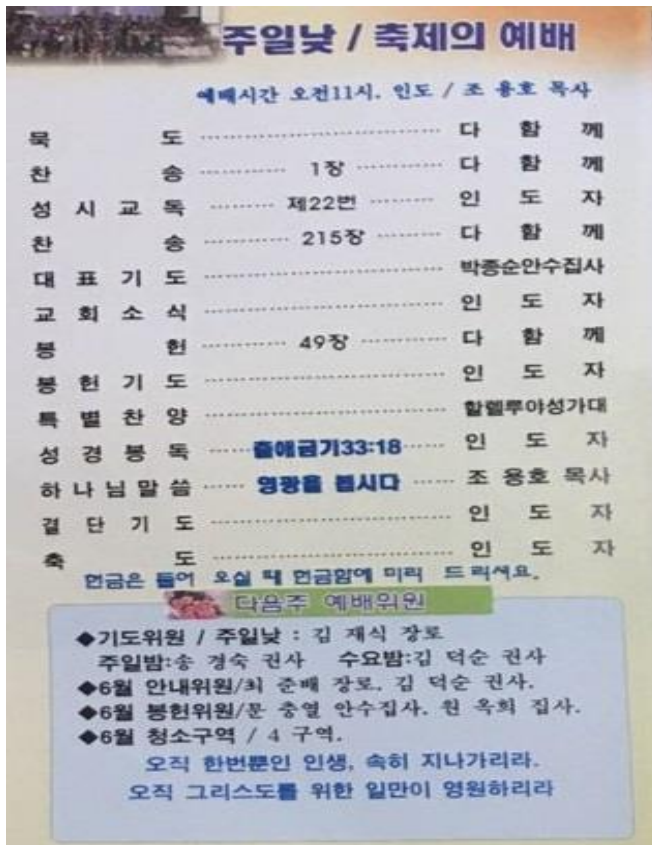 주일낮 / 축제의 예배
예배시간 오전11시. 인도 / 조 용호 목사
묵 도 ................................ 다 함 께
찬 송 ............ 1장 ............ 다 함 께
성 시 교 독 ......... 제22번 ......... 인 도 자
찬 송 ............ 215장 ......... 다 함 께
대 표 기 도 ................................ 박종순안수집사
교 회 소 식 ................................ 인 도 자
봉 헌 ............ 49장 ............ 다 함 께
봉 헌 기 도 ................................ 인 도 자
특 별 찬 양 ................................ 할렐루야성가대
성 경 봉 독 ...... 출애굽기33:18 ...... 인 도 자
하 나 님 말 씀 ...... 영광을 봅시다 ...... 조 용호 목사
결 단 기 도 ................................ 인 도 자
축 도 ................................ 인 도 자
헌금은 들어 오실 때 헌금함에 미리 드리세요.
다음주 예배위원
◆기도위원 / 주일낮 : 김 재식 장로
주일밤:송 경숙 권사 수요밤:김 덕순 권사
◆6월 안내위원/최 준배 장로, 김 덕순 권사.
◆6월 봉헌위원/문 충열 안수집사. 원 옥희 집사.
◆6월 청소구역 / 4 구역.
오직 한번뿐인 인생, 속히 지나가리라.
오직 그리스도를 위한 일만이 영원하리라